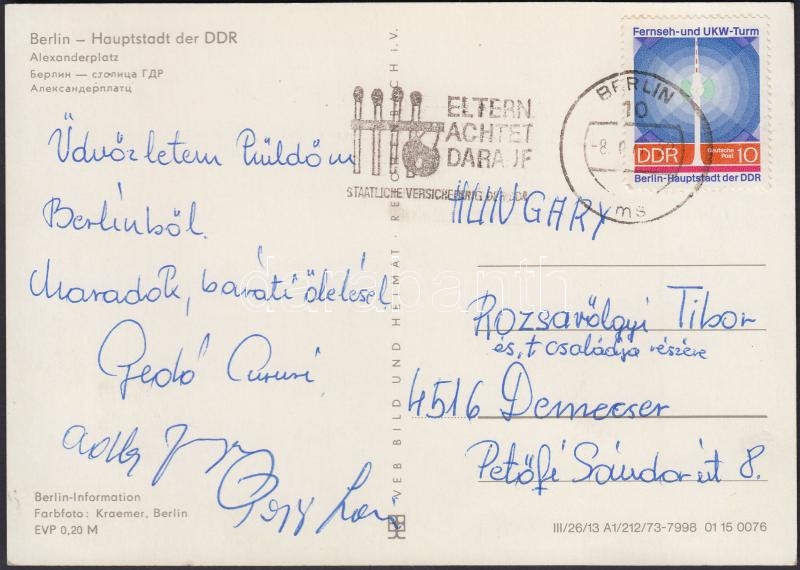 Berlin – Hauptstadt der DDR
Alexanderplatz
Берлин — столица ГДР
Александерплатц
Üdvözletem Küldöm
Berlinből.
Maradok, baráti öleléssel
Gedó
Berlin-Information
Farbfoto: Kraemer, Berlin
EVP 0,20 M
VEB BILD UND HEIMAT · REICHENBACH I.V.
ELTERN
ACHTET
DARAUF
STAATLICHE VERSICHERUNG DER DDR
BERLIN
10
-8.
ms
Fernseh-und UKW-Turm
DDR
Deutsche
Post 10
Berlin-Hauptstadt der DDR
HUNGARY
Rozsavölgyi Tibor
és t családja részére
4516 Demecser
Petőfi Sándor út 8.
III/26/13 A1/212/73-7998 01 15 0076
darabanth